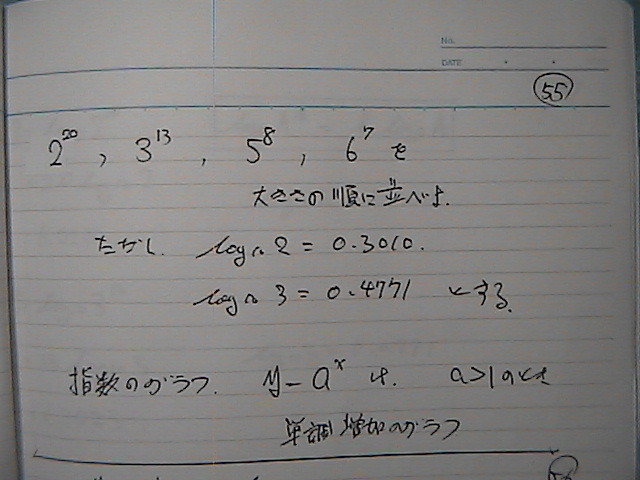 No.
DATE
55
2^20 , 3^13 , 5^8 , 6^7 を
大きさの順に並べよ.
ただし. log₁₀ 2 = 0.3010.
log₁₀ 3 = 0.4771 とする.
指数のグラフ. y = a^x は. a>1のとき
単調増加のグラフ